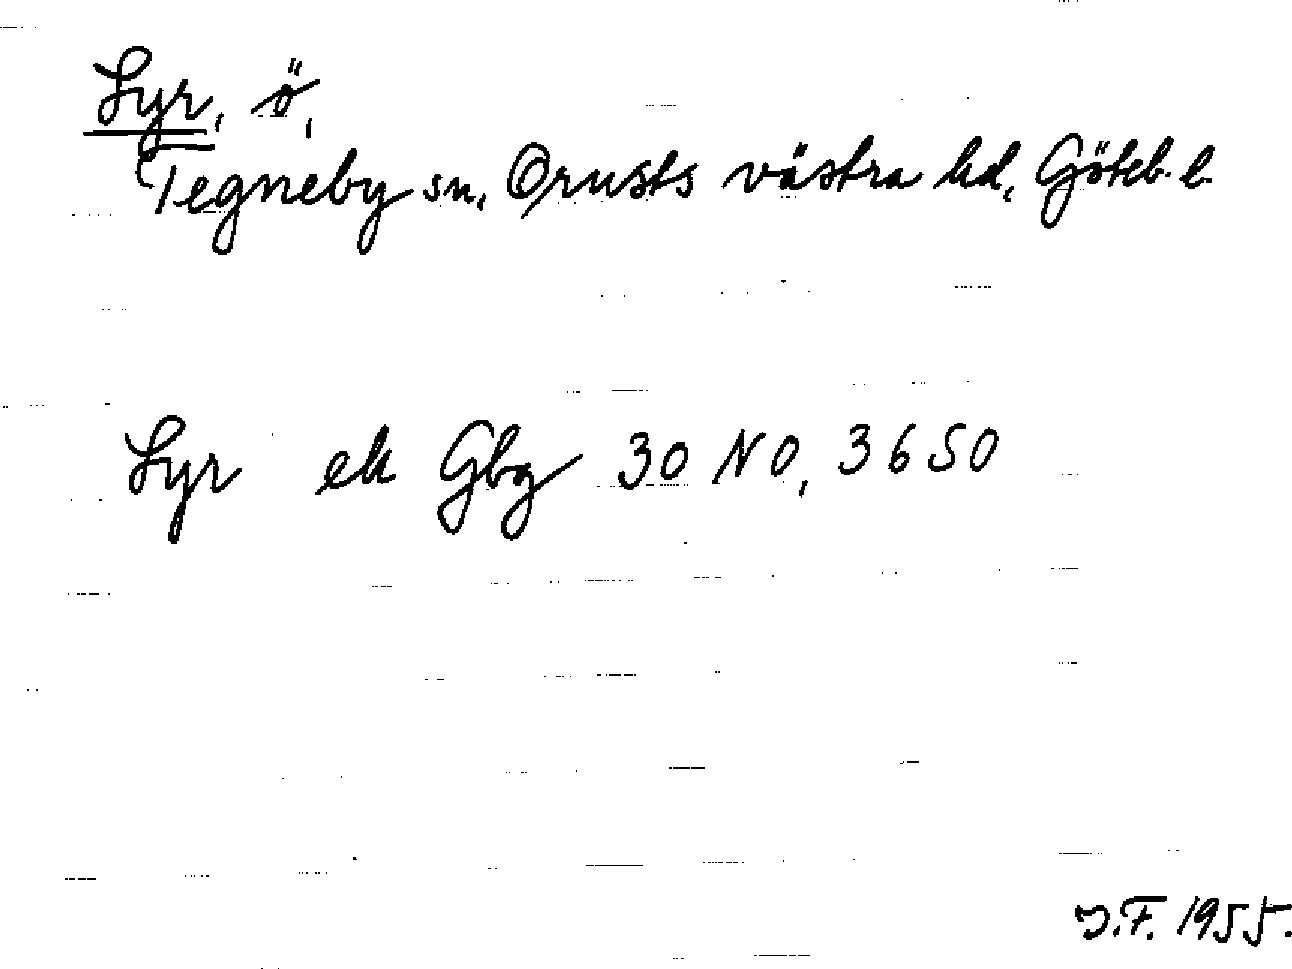 Lyr, ö,
Tegneby sn, Orusts västra hd, Göteb. l.
Lyr ek Gbg 30 NO, 3650
J.F. 1955.